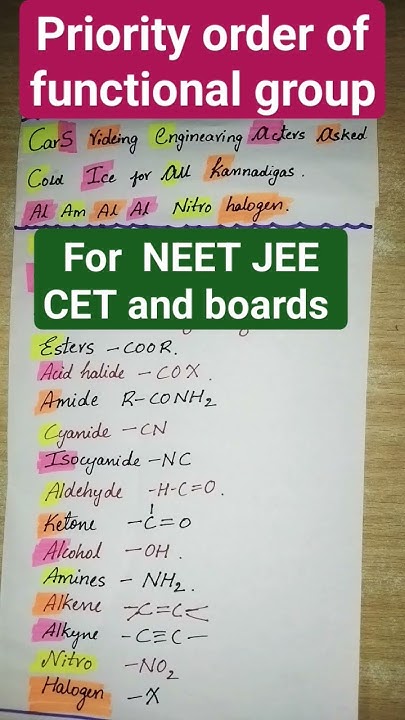 Priority order of
functional group
CarS rideing Engineering Acters Asked
Cold Ice for All Kannadigas.
Al Am Al Al Nitro halogen.
For NEET JEE
CET and boards
Esters - COOR.
Acid halide - COX.
Amide R-CONH₂
Cyanide - CN
Isocyanide - NC
Aldehyde -H-C=O.
Ketone -C=O
Alcohol - OH.
Amines - NH₂.
Alkene >C=C<
Alkyne -C≡C-
Nitro -NO₂
Halogen -X